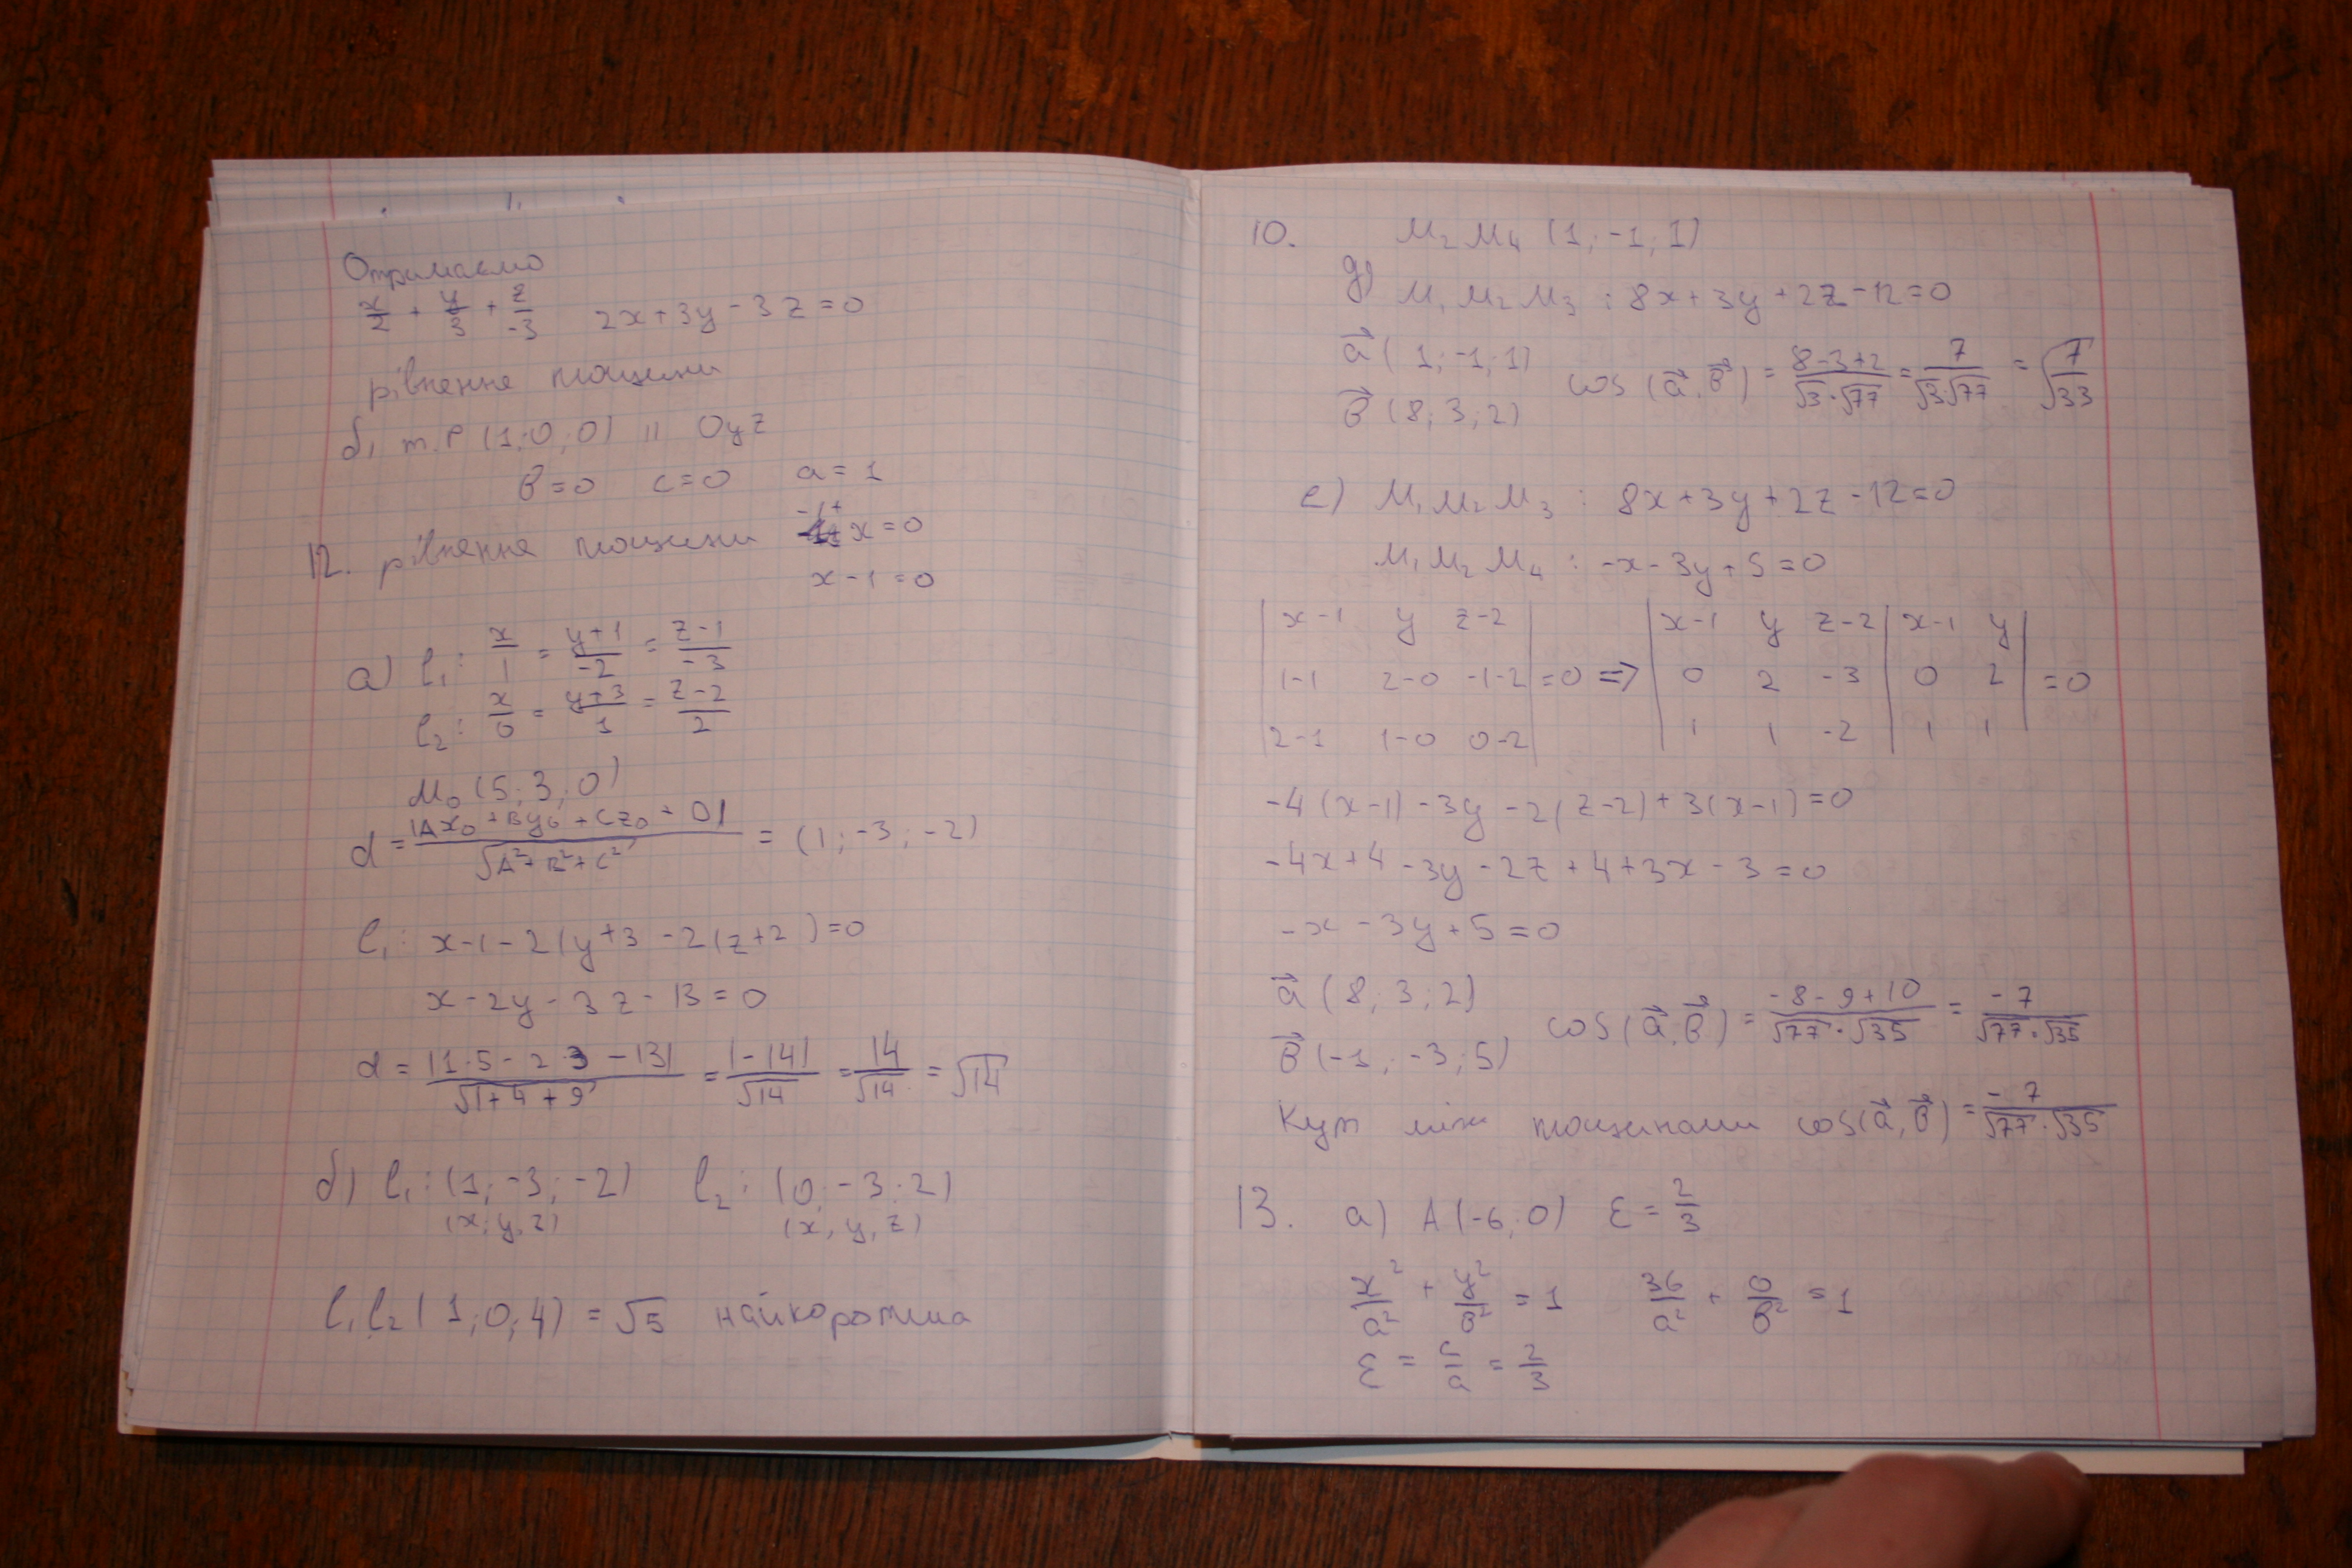 Отримаємо
x/2 + y/3 + z/-3   2x+3y-3z=0
рівнення площини
б) т.P (1;0;0) || Oyz
в=0   c=0   a=1
12. рівнення площини -1+x=0
x-1=0
а) l₁: x/1 = (y+1)/-2 = (z-1)/-3
l₂: x/0 = (y+3)/1 = (z-2)/2
M₀(5;3;0)
d = |Ax₀+By₀+Cz₀+D|/√(A²+B²+C²) = (1;-3;-2)
l₁: x-1-2(y+3-2(z+2)=0
x-2y-3z-13=0
d = |1·5-2·3-13|/√(1+4+9) = |-14|/√14 = 14/√14 = √14
б) l₁: (1;-3;-2)   l₂: (0;-3;2)
(x;y,z)   (x,y,z)
l₁l₂(1;0;4) = √5 найкоротша
10.   M₂M₄ (1;-1;1)
д) M₁M₂M₃: 8x+3y+2z-12=0
a⃗(1;-1;1)
cos(a⃗,в⃗) = (8-3+2)/(√3·√77) = 7/(√3·√77) = √(7/33)
в⃗(8;3;2)
е) M₁M₂M₃: 8x+3y+2z-12=0
M₁M₂M₄: -x-3y+5=0
|x-1 y z-2| |x-1 y z-2|x-1 y|
|1-1 2-0 -1-2|=0 => |0 2 -3|0 2|=0
|2-1 1-0 0-2| |1 1 -2|1 1|
-4(x-1)-3y-2(z-2)+3(x-1)=0
-4x+4-3y-2z+4+3x-3=0
-x-3y+5=0
a⃗(8;3;2)
cos(a⃗,в⃗) = (-8-9+10)/(√77·√35) = -7/(√77·√35)
в⃗(-1;-3;5)
Кут між площинами cos(a⃗,в⃗) = -7/(√77·√35)
13. а) A(-6;0)   ε = 2/3
x²/a² + y²/в² = 1   36/a² + 0/в² = 1
ε = c/a = 2/3